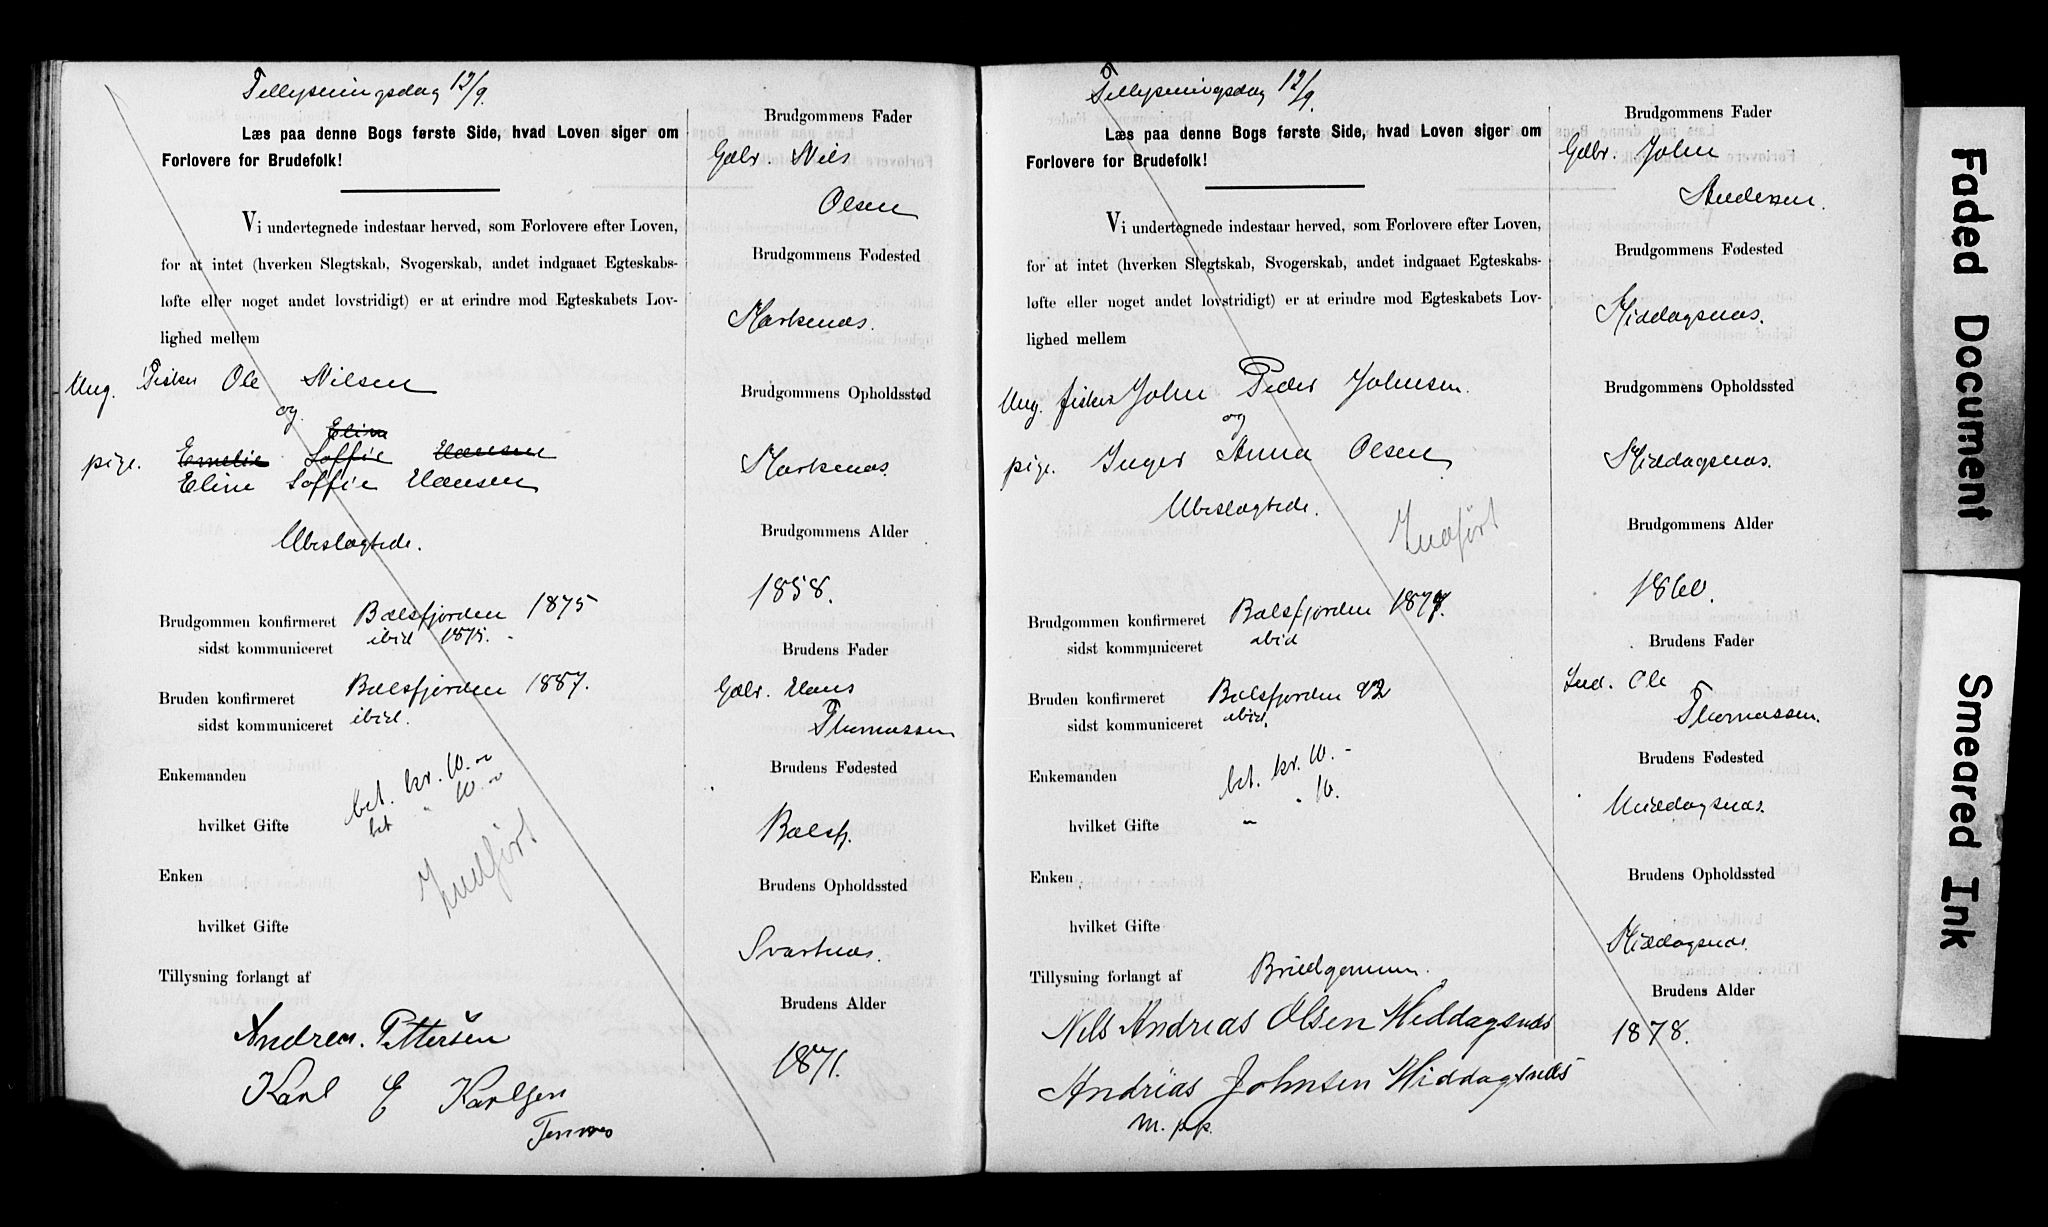 Tillysningsdag 12/9.
Læs paa denne Bogs første Side, hvad Loven siger om
Forlovere for Brudefolk!
Vi undertegnede indestaar herved, som Forlovere efter Loven,
for at intet (hverken Slegtskab, Svogerskab, andet indgaaet Egteskabs-
løfte eller noget andet lovstridigt) er at erindre mod Egteskabets Lov-
lighed mellem
Ung. Fisker Ole Nilsen
og
Eline
pige. Emelie Soffie Hansen
Eline Soffie Hansen
Ubeslægtede.
Brudgommen konfirmeret Balsfjorden 1875
sidst kommuniceret ibid 1875.
Bruden konfirmeret Balsfjorden 1887.
sidst kommuniceret ibid.
Enkemanden bet. kr. 10.-
hvilket Gifte bet " 10.-
Indført
Enken
hvilket Gifte
Tillysning forlangt af
Andreas. Pettersen
Karl E Karlsen
Tennes
Brudgommens Fader
Gdbr. Nils
Olsen
Brudgommens Fødested
Markenes.
Brudgommens Opholdssted
Markenes.
Brudgommens Alder
1858.
Brudens Fader
Gdbr. Hans
Thomassen
Brudens Fødested
Balsfj.
Brudens Opholdssted
Svartnes.
Brudens Alder
1871.
Tillysningsdag 12/9.
Læs paa denne Bogs første Side, hvad Loven siger om
Forlovere for Brudefolk!
Vi undertegnede indestaar herved, som Forlovere efter Loven,
for at intet (hverken Slegtskab, Svogerskab, andet indgaaet Egteskabs-
løfte eller noget andet lovstridigt) er at erindre mod Egteskabets Lov-
lighed mellem
Ung. fisker John Peder Johnsen.
og
pige. Inger Anna Olsen
Ubeslægtede.
Indført
Brudgommen konfirmeret Balsfjorden
sidst kommuniceret ibid
Bruden konfirmeret Balsfjorden 92
sidst kommuniceret ibid.
Enkemanden bet. kr. 10.-
hvilket Gifte " " 10.
Enken
hvilket Gifte
Tillysning forlangt af Brudgommen.
Nils Andreas Olsen Middagsnæs
Andreas Johnsen Middagsnæs
m. p. p.
Brudgommens Fader
Gdbr. John
Andersen.
Brudgommens Fødested
Middagsnes.
Brudgommens Opholdssted
Middagsnes.
Brudgommens Alder
1860.
Brudens Fader
Ind. Ole
Thomassen.
Brudens Fødested
Middagsnes.
Brudens Opholdssted
Middagsnes
Brudens Alder
1878.
Faded Document
Smeared Ink